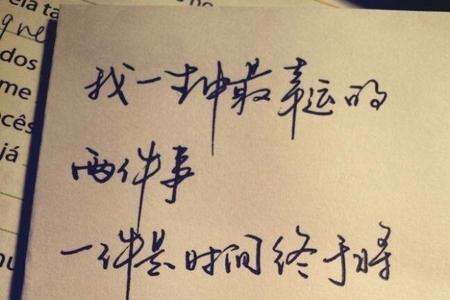 ela ta
que
dos
me
cês
já
我一生中最幸运的
两件事
一件是时间终于将